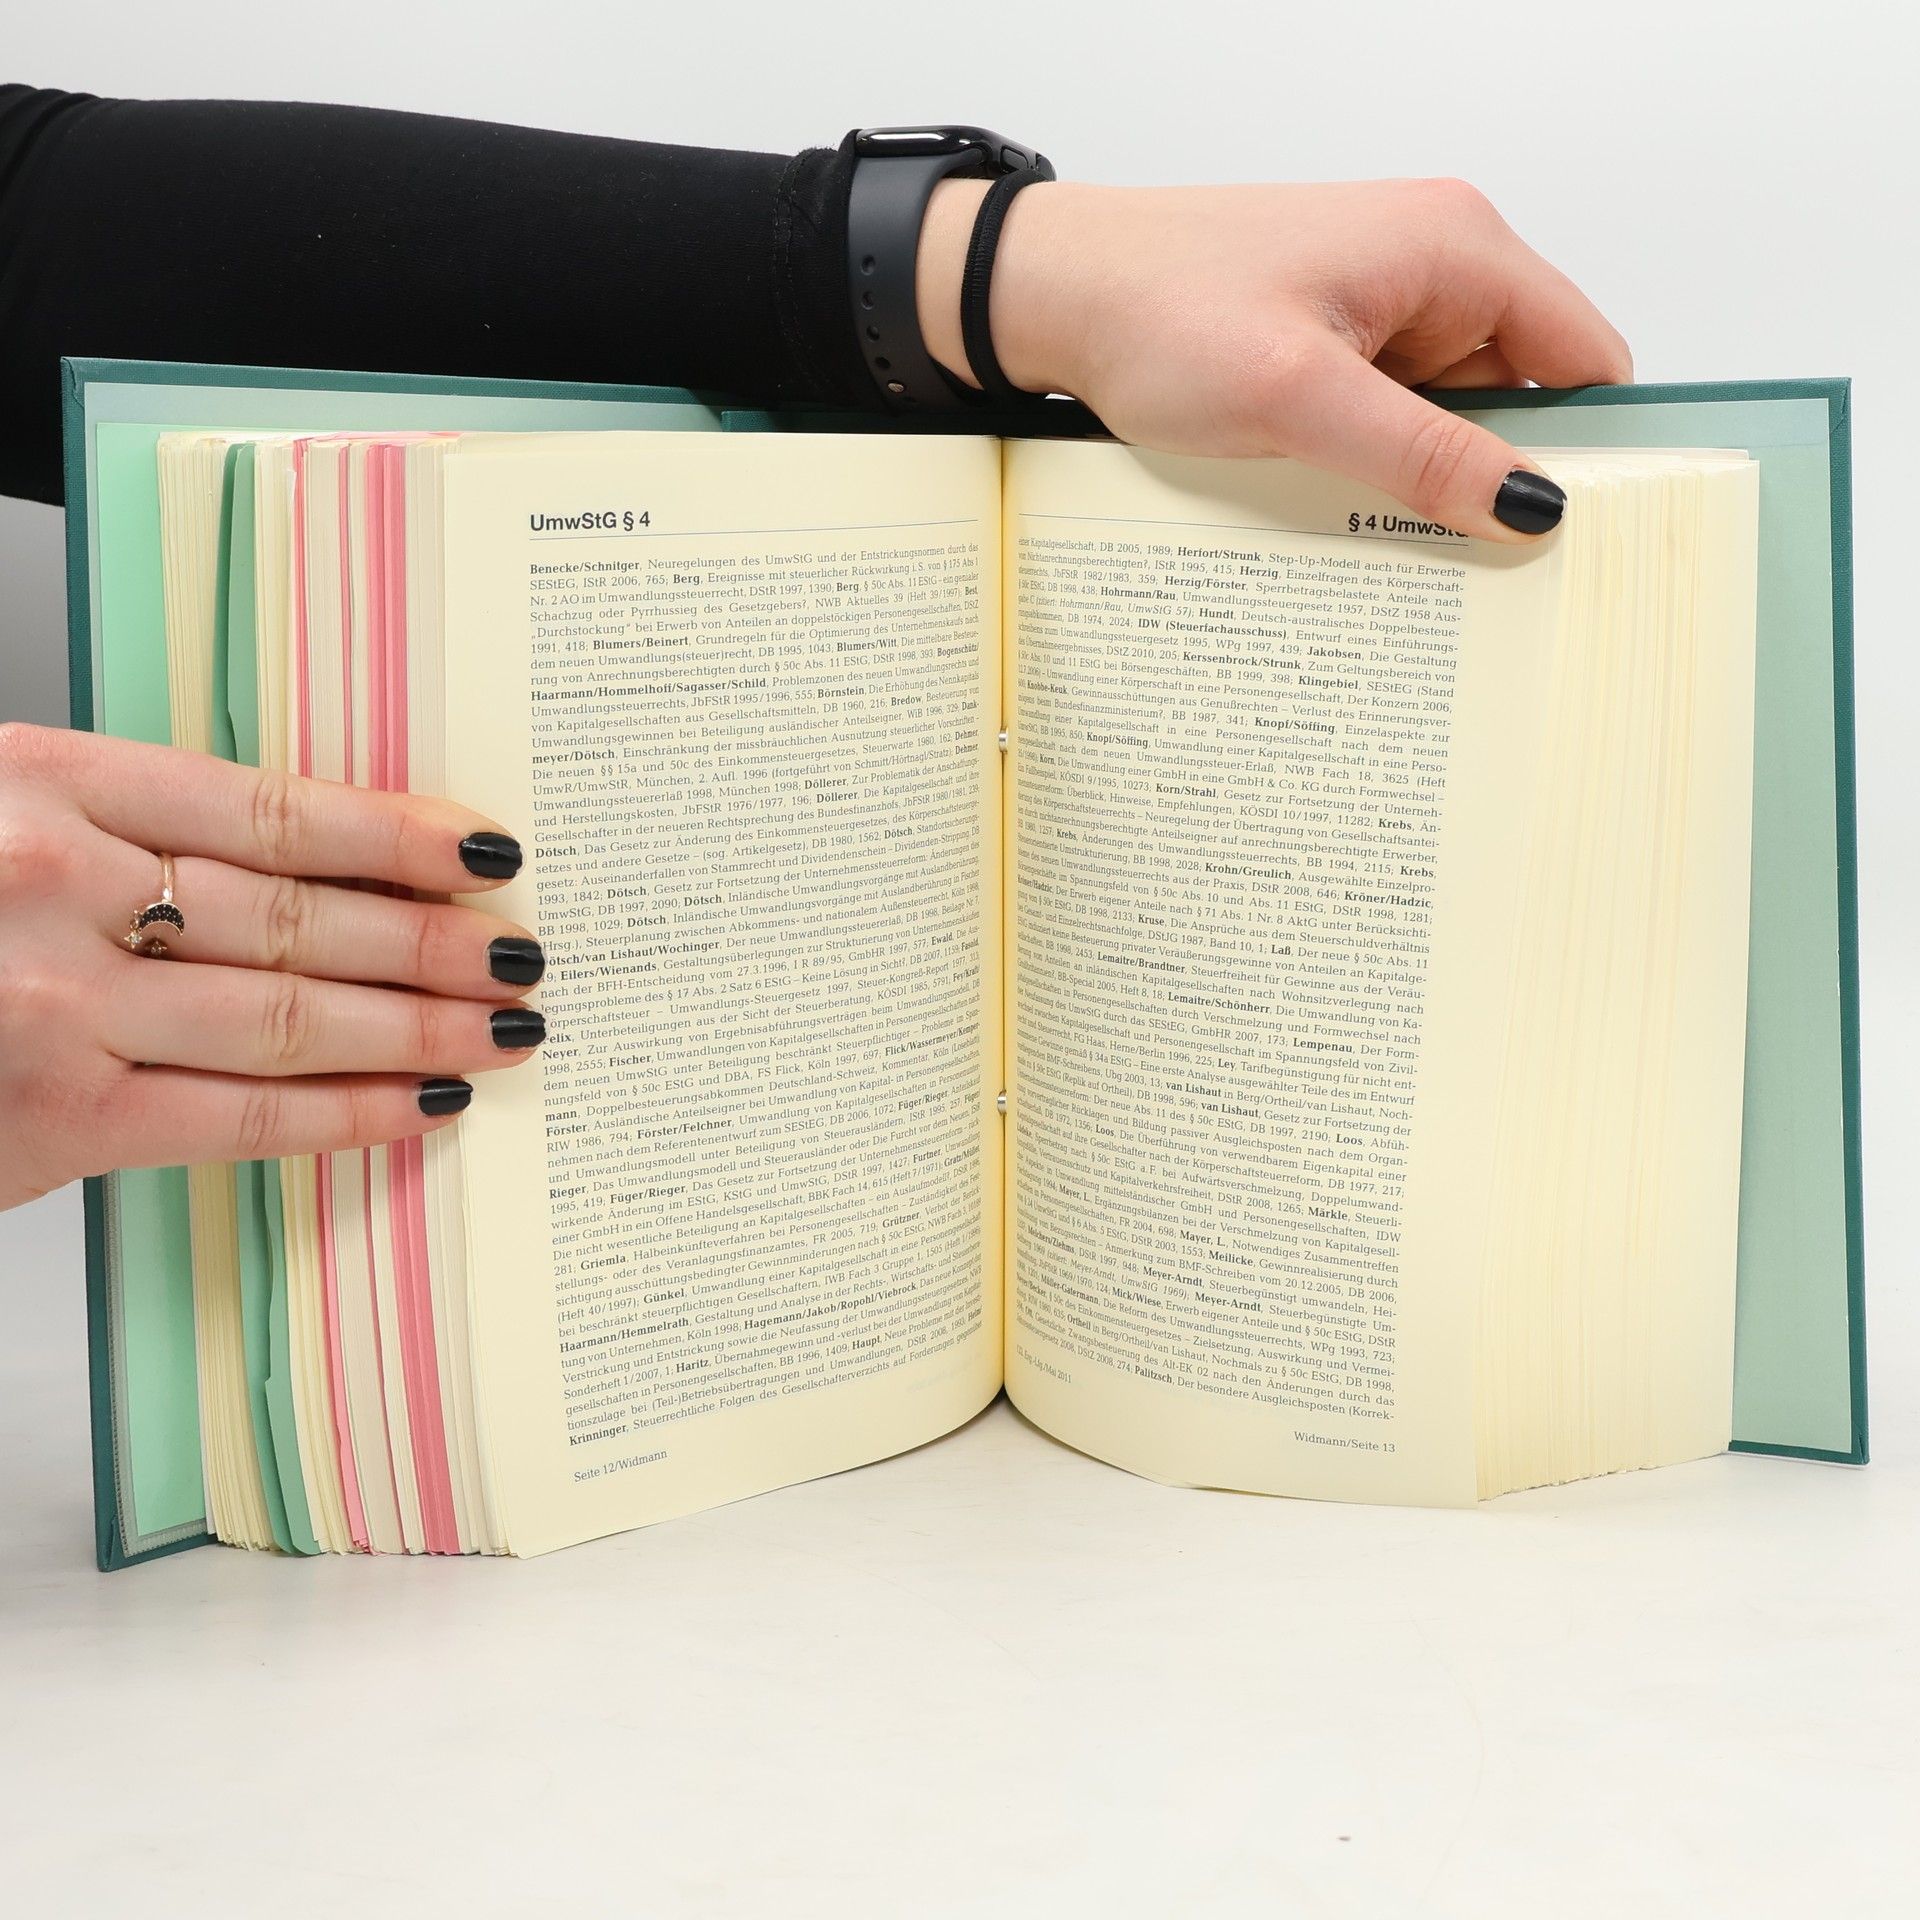 UmwStG § 4
Benecke/Schnitger, Neuregelungen des UmwStG und der Entstrickungsnormen durch das
SEStEG, IStR 2006, 765; Berg, Ereignisse mit steuerlicher Rückwirkung i.S. von § 175 Abs 1
Nr. 2 AO im Umwandlungssteuerrecht, DStR 1997, 1390; Berg, § 50c Abs. 11 EStG – ein genialer
Schachzug oder Pyrrhussieg des Gesetzgebers?, NWB Aktuelles 39 (Heft 39/1997); Best,
„Durchstockung“ bei Erwerb von Anteilen an doppelstöckigen Personengesellschaften, DStZ
1991, 418; Blumers/Beinert, Grundregeln für die Optimierung des Unternehmenskaufs nach
dem neuen Umwandlungs(steuer)recht, DB 1995, 1043; Blumers/Witt, Die mittelbare Besteue-
rung von Anrechnungsberechtigten durch § 50c Abs. 11 EStG, DStR 1998, 393; Bogenschütz/
Haarmann/Hommelhoff/Sagasser/Schild, Problemzonen des neuen Umwandlungsrechts und
Umwandlungssteuerrechts, JbFStR 1995/1996, 555; Börnstein, Die Erhöhung des Nennkapitals
von Kapitalgesellschaften aus Gesellschaftsmitteln, DB 1960, 216; Bredow, Besteuerung von
Umwandlungsgewinnen bei Beteiligung ausländischer Anteilseigner, WiB 1996, 329; Dank-
meyer/Dötsch, Einschränkung der missbräuchlichen Ausnutzung steuerlicher Vorschriften –
Die neuen §§ 15a und 50c des Einkommensteuergesetzes, Steuerwarte 1980, 162; Dehmer,
UmwR/UmwStR, München, 2. Aufl. 1996 (fortgeführt von Schmitt/Hörtnagl/Stratz); Dehmer,
Umwandlungssteuererlaß 1998, München 1998; Döllerer, Zur Problematik der Anschaffungs-
und Herstellungskosten, JbFStR 1976/1977, 196; Döllerer, Die Kapitalgesellschaft und ihre
Gesellschafter in der neueren Rechtsprechung des Bundesfinanzhofs, JbFStR 1980/1981, 239;
Dötsch, Das Gesetz zur Änderung des Einkommensteuergesetzes, des Körperschaftsteuerge-
setzes und andere Gesetze – (sog. Artikelgesetz), DB 1980, 1562; Dötsch, Standortsicherungs-
gesetz: Auseinanderfallen von Stammrecht und Dividendenschein – Dividenden-Stripping, DB
1993, 1842; Dötsch, Gesetz zur Fortsetzung der Unternehmenssteuerreform: Änderungen des
UmwStG, DB 1997, 2090; Dötsch, Inländische Umwandlungsvorgänge mit Auslandsberührung,
BB 1998, 1029; Dötsch, Inländische Umwandlungsvorgänge mit Auslandberührung in Fischer
(Hrsg.), Steuerplanung zwischen Abkommens- und nationalem Außensteuerrecht, Köln 1998,
ötsch/van Lishaut/Wochinger, Der neue Umwandlungssteuererlaß, DB 1998, Beilage Nr. 7,
9; Eilers/Wienands, Gestaltungsüberlegungen zur Strukturierung von Unternehmenskäufen
nach der BFH-Entscheidung vom 27.3.1996, I R 89/95, GmbHR 1997, 577; Ewald, Die Aus-
legungsprobleme des § 17 Abs. 2 Satz 6 EStG – Keine Lösung in Sicht?, DB 2007, 1159; Fasold,
örperschaftsteuer – Umwandlungs-Steuergesetz 1997, Steuer-Kongreß-Report 1977, 313;
elix, Unterbeteiligungen aus der Sicht der Steuerberatung, KÖSDI 1985, 5791; Fey/Kraft/
Neyer, Zur Auswirkung von Ergebnisabführungsverträgen beim Umwandlungsmodell, DB
1998, 2555; Fischer, Umwandlungen von Kapitalgesellschaften in Personengesellschaften nach
dem neuen UmwStG unter Beteiligung beschränkt Steuerpflichtiger – Probleme im Span-
nungsfeld von § 50c EStG und DBA, FS Flick, Köln 1997, 697; Flick/Wassermeyer/Kemper-
mann, Doppelbesteuerungsabkommen Deutschland-Schweiz, Kommentar, Köln (Loseblatt);
Förster, Ausländische Anteilseigner bei Umwandlung von Kapital- in Personengesellschaften,
RIW 1986, 794; Förster/Felchner, Umwandlung von Kapitalgesellschaften in Personenunter-
nehmen nach dem Referentenentwurf zum SEStEG, DB 2006, 1072; Füger/Rieger, Anteilskauf
und Umwandlungsmodell unter Beteiligung von Steuerausländern, IStR 1995, 257; Füger/
Rieger, Das Umwandlungsmodell und Steuerausländer oder Die Furcht vor dem Neuen, IStR
1995, 419; Füger/Rieger, Das Gesetz zur Fortsetzung der Unternehmenssteuerreform – rück-
wirkende Änderung im EStG, KStG und UmwStG, DStR 1997, 1427; Furtner, Umwandlung
einer GmbH in ein Offene Handelsgesellschaft, BBK Fach 14, 615 (Heft 7/1971); Gratz/Müller,
Die nicht wesentliche Beteiligung an Kapitalgesellschaften – ein Auslaufmodell?, DStR 1996,
281; Griemla, Halbeinkünfteverfahren bei Personengesellschaften – Zuständigkeit des Fest-
stellungs- oder des Veranlagungsfinanzamtes, FR 2005, 719; Grützner, Verbot der Berück-
sichtigung ausschüttungsbedingter Gewinnminderungen nach § 50c EStG, NWB Fach 3, 10169
(Heft 40/1997); Günkel, Umwandlung einer Kapitalgesellschaft in eine Personengesellschaft
bei beschränkt steuerpflichtigen Gesellschaftern, IWB Fach 3 Gruppe 1, 1505 (Heft 1/1996);
Haarmann/Hemmelrath, Gestaltung und Analyse in der Rechts-, Wirtschafts- und Steuerbera-
tung von Unternehmen, Köln 1998; Hagemann/Jakob/Ropohl/Viebrock, Das neue Konzept der
Verstrickung und Entstrickung sowie die Neufassung der Umwandlungssteuergesetzes, NWB
Sonderheft 1/2007, 1; Haritz, Übernahmegewinn und -verlust bei der Umwandlung von Kapital-
gesellschaften in Personengesellschaften, BB 1996, 1409; Haupt, Neue Probleme mit der Investi-
tionszulage bei (Teil-)Betriebsübertragungen und Umwandlungen, DStR 2008, 1993; Heini/
Krinninger, Steuerrechtliche Folgen des Gesellschafterverzichts auf Forderungen gegenüber
Seite 12/Widmann
§ 4 UmwStG
einer Kapitalgesellschaft, DB 2005, 1989; Herfort/Strunk, Step-Up-Modell auch für Erwerbe
von Nichtanrechnungsberechtigten?, IStR 1995, 415; Herzig, Einzelfragen des Körperschaft-
steuerrechts, JbFStR 1982/1983, 359; Herzig/Förster, Sperrbetragsbelastete Anteile nach
§ 50c EStG, DB 1998, 438; Hohrmann/Rau, Umwandlungssteuergesetz 1957, DStZ 1958 Aus-
gabe C (zitiert: Hohrmann/Rau, UmwStG 57); Hundt, Deutsch-australisches Doppelbesteue-
rungsabkommen, DB 1974, 2024; IDW (Steuerfachausschuss), Entwurf eines Einführungs-
schreibens zum Umwandlungssteuergesetz 1995, WPg 1997, 439; Jakobsen, Die Gestaltung
des Übernahmeergebnisses, DStZ 2010, 205; Kerssenbrock/Strunk, Zum Geltungsbereich von
§ 50c Abs. 10 und 11 EStG bei Börsengeschäften, BB 1999, 398; Klingebiel, SEStEG (Stand
12.7.2006) – Umwandlung einer Körperschaft in eine Personengesellschaft, Der Konzern 2006,
600; Knobbe-Keuk, Gewinnausschüttungen aus Genußrechten – Verlust des Erinnerungsver-
mögens beim Bundesfinanzministerium?, BB 1987, 341; Knopf/Söffing, Einzelaspekte zur
Umwandlung einer Kapitalgesellschaft in eine Personengesellschaft nach dem neuen
UmwStG, BB 1995, 850; Knopf/Söffing, Umwandlung einer Kapitalgesellschaft in eine Perso-
nengesellschaft nach dem neuen Umwandlungssteuer-Erlaß, NWB Fach 18, 3625 (Heft
35/1998); Korn, Die Umwandlung einer GmbH in eine GmbH & Co. KG durch Formwechsel –
Ein Fallbeispiel, KÖSDI 9/1995, 10273; Korn/Strahl, Gesetz zur Fortsetzung der Unterneh-
mensteuerreform: Überblick, Hinweise, Empfehlungen, KÖSDI 10/1997, 11282; Krebs, Än-
derung des Körperschaftsteuerrechts – Neuregelung der Übertragung von Gesellschaftsantei-
len durch nichtanrechnungsberechtigte Anteilseigner auf anrechnungsberechtigte Erwerber,
BB 1980, 1257; Krebs, Änderungen des Umwandlungssteuerrechts, BB 1994, 2115; Krebs,
Steuerorientierte Umstrukturierung, BB 1998, 2028; Krohn/Greulich, Ausgewählte Einzelpro-
bleme des neuen Umwandlungssteuerrechts aus der Praxis, DStR 2008, 646; Kröner/Hadzic,
Börsengeschäfte im Spannungsfeld von § 50c Abs. 10 und Abs. 11 EStG, DStR 1998, 1281;
Kröner/Hadzic, Der Erwerb eigener Anteile nach § 71 Abs. 1 Nr. 8 AktG unter Berücksichti-
gung von § 50c EStG, DB 1998, 2133; Kruse, Die Ansprüche aus dem Steuerschuldverhältnis
bei Gesamt- und Einzelrechtsnachfolge, DStJG 1987, Band 10, 1; Laß, Der neue § 50c Abs. 11
EStG reduziert keine Besteuerung privater Veräußerungsgewinne von Anteilen an Kapitalge-
sellschaften, BB 1998, 2453; Lemaitre/Brandtner, Steuerfreiheit für Gewinne aus der Veräu-
ßerung von Anteilen an inländischen Kapitalgesellschaften nach Wohnsitzverlegung nach
Großbritannien?, BB-Special 2005, Heft 8, 18; Lemaitre/Schönherr, Die Umwandlung von Ka-
pitalgesellschaften in Personengesellschaften durch Verschmelzung und Formwechsel nach
der Neufassung des UmwStG durch das SEStEG, GmbHR 2007, 173; Lempenau, Der Form-
wechsel zwischen Kapitalgesellschaft und Personengesellschaft im Spannungsfeld von Zivil-
recht und Steuerrecht, FG Haas, Herne/Berlin 1996, 225; Ley, Tarifbegünstigung für nicht ent-
nommene Gewinne gemäß § 34a EStG – Eine erste Analyse ausgewählter Teile des im Entwurf
vorliegenden BMF-Schreibens, Ubg 2003, 13; van Lishaut in Berg/Ortheil/van Lishaut, Noch-
mals zu § 50c EStG (Replik auf Ortheil), DB 1998, 596; van Lishaut, Gesetz zur Fortsetzung der
Unternehmensteuerreform: Der neue Abs. 11 des § 50c EStG, DB 1997, 2190; Loos, Abfüh-
rung vorvertraglicher Rücklagen und Bildung passiver Ausgleichsposten nach dem Organ-
schaftserlaß, DB 1972, 1356; Loos, Die Überführung von verwendbarem Eigenkapital einer
Kapitalgesellschaft auf ihre Gesellschafter nach der Körperschaftsteuerreform, DB 1977, 217;
Sperrbetrag nach § 50c EStG a.F. bei Aufwärtsverschmelzung, Doppelumwand-
Vertrauensschutz und Kapitalverkehrsfreiheit, DStR 2008, 1265; Märkle, Steuerli-
che Aspekte in Umwandlung mittelständischer GmbH und Personengesellschaften, IDW
Fachtagung 1994; Mayer, L., Ergänzungsbilanzen bei der Verschmelzung von Kapitalgesell-
schaften in Personengesellschaften, FR 2004, 698; Mayer, L., Notwendiges Zusammentreffen
von § 24 UmwStG und § 6 Abs. 5 EStG, DStR 2003, 1553; Meilicke, Gewinnrealisierung durch
von Bezugsrechten – Anmerkung zum BMF-Schreiben vom 20.12.2005, DB 2006,
Melchers/Ziehms, DStR 1997, 948; Meyer-Arndt, Steuerbegünstigt umwandeln, Hei-
delberg 1969 (zitiert: Meyer-Arndt, UmwStG 1969); Meyer-Arndt, Steuerbegünstigte Um-
wandlung, JbFStR 1969/1970, 124; Mick/Wiese, Erwerb eigener Anteile und § 50c EStG, DStR
Müller-Gatermann, Die Reform des Umwandlungssteuerrechts, WPg 1993, 723;
§ 50c des Einkommensteuergesetzes – Zielsetzung, Auswirkung und Vermei-
dung, RIW 1980, 635; Ortheil in Berg/Ortheil/van Lishaut, Nochmals zu § 50c EStG, DB 1998,
Ott, Gesetzliche Zwangsbesteuerung des Alt-EK 02 nach den Änderungen durch das
Jahressteuergesetz 2008, DStZ 2008, 274; Palitzsch, Der besondere Ausgleichsposten (Korrek-
Erg.-Lfg./Mai 2011
Widmann/Seite 13